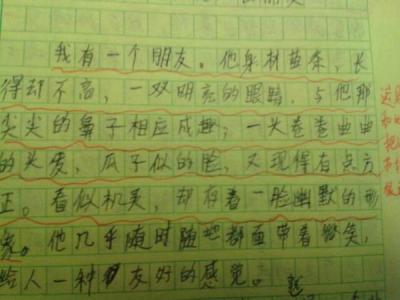 我有一个朋友。他身材苗条，长
得却不高，一双明亮的眼睛，与他那
尖尖的鼻子相应成趣，一头卷卷曲曲
的头发，瓜子似的脸，又现得有点方
正。看似机美，却存着一脸幽默的形
象。他几乎随时随地都面带着微笑，
给人一种友好的感觉。